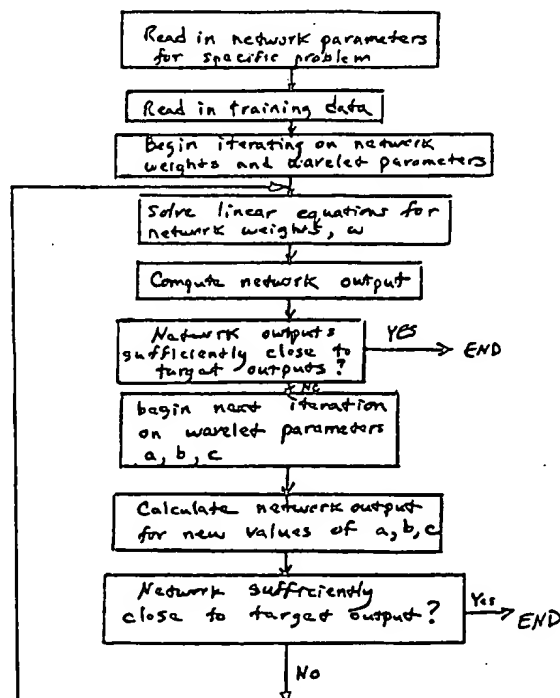 Read in network parameters
for specific problem
Read in training data
Begin iterating on network
weights and wavelet parameters
Solve linear equations for
network weights, w
Compute network output
Network outputs
sufficiently close to
target outputs?
YES
END
NO
begin next iteration
on wavelet parameters
a, b, c
Calculate network output
for new values of a, b, c
Network sufficiently
close to target output?
Yes
END
NO